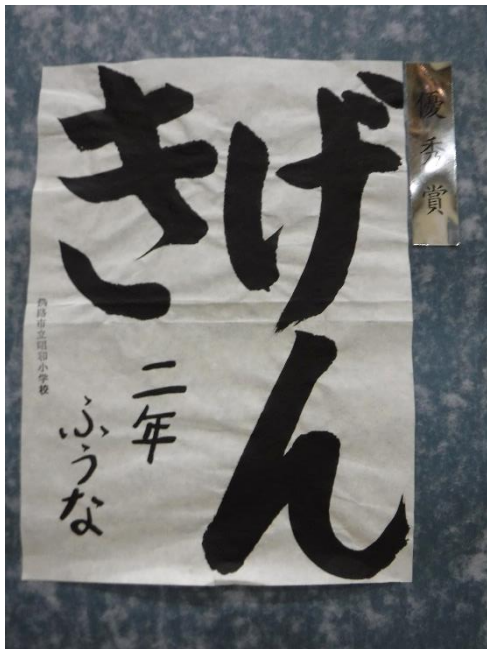 優秀賞
げん
き
二年
ふうな
市立昭和小学校